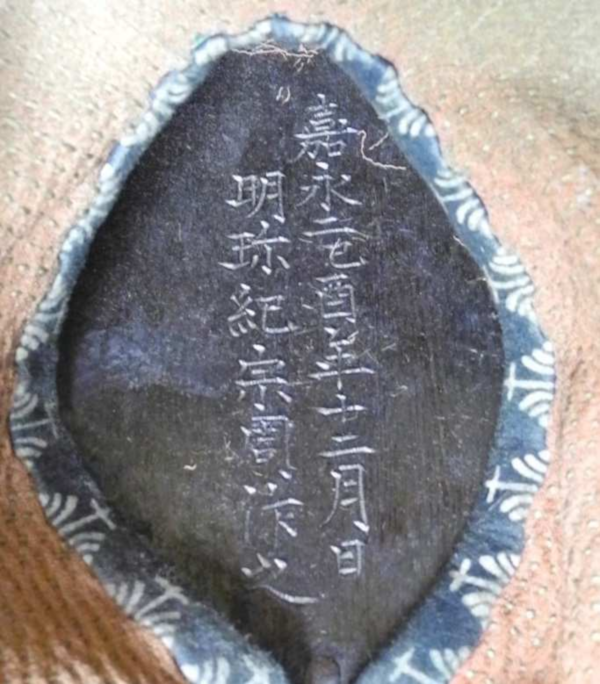 嘉永二己酉年十二月日
明珎紀宗周作之